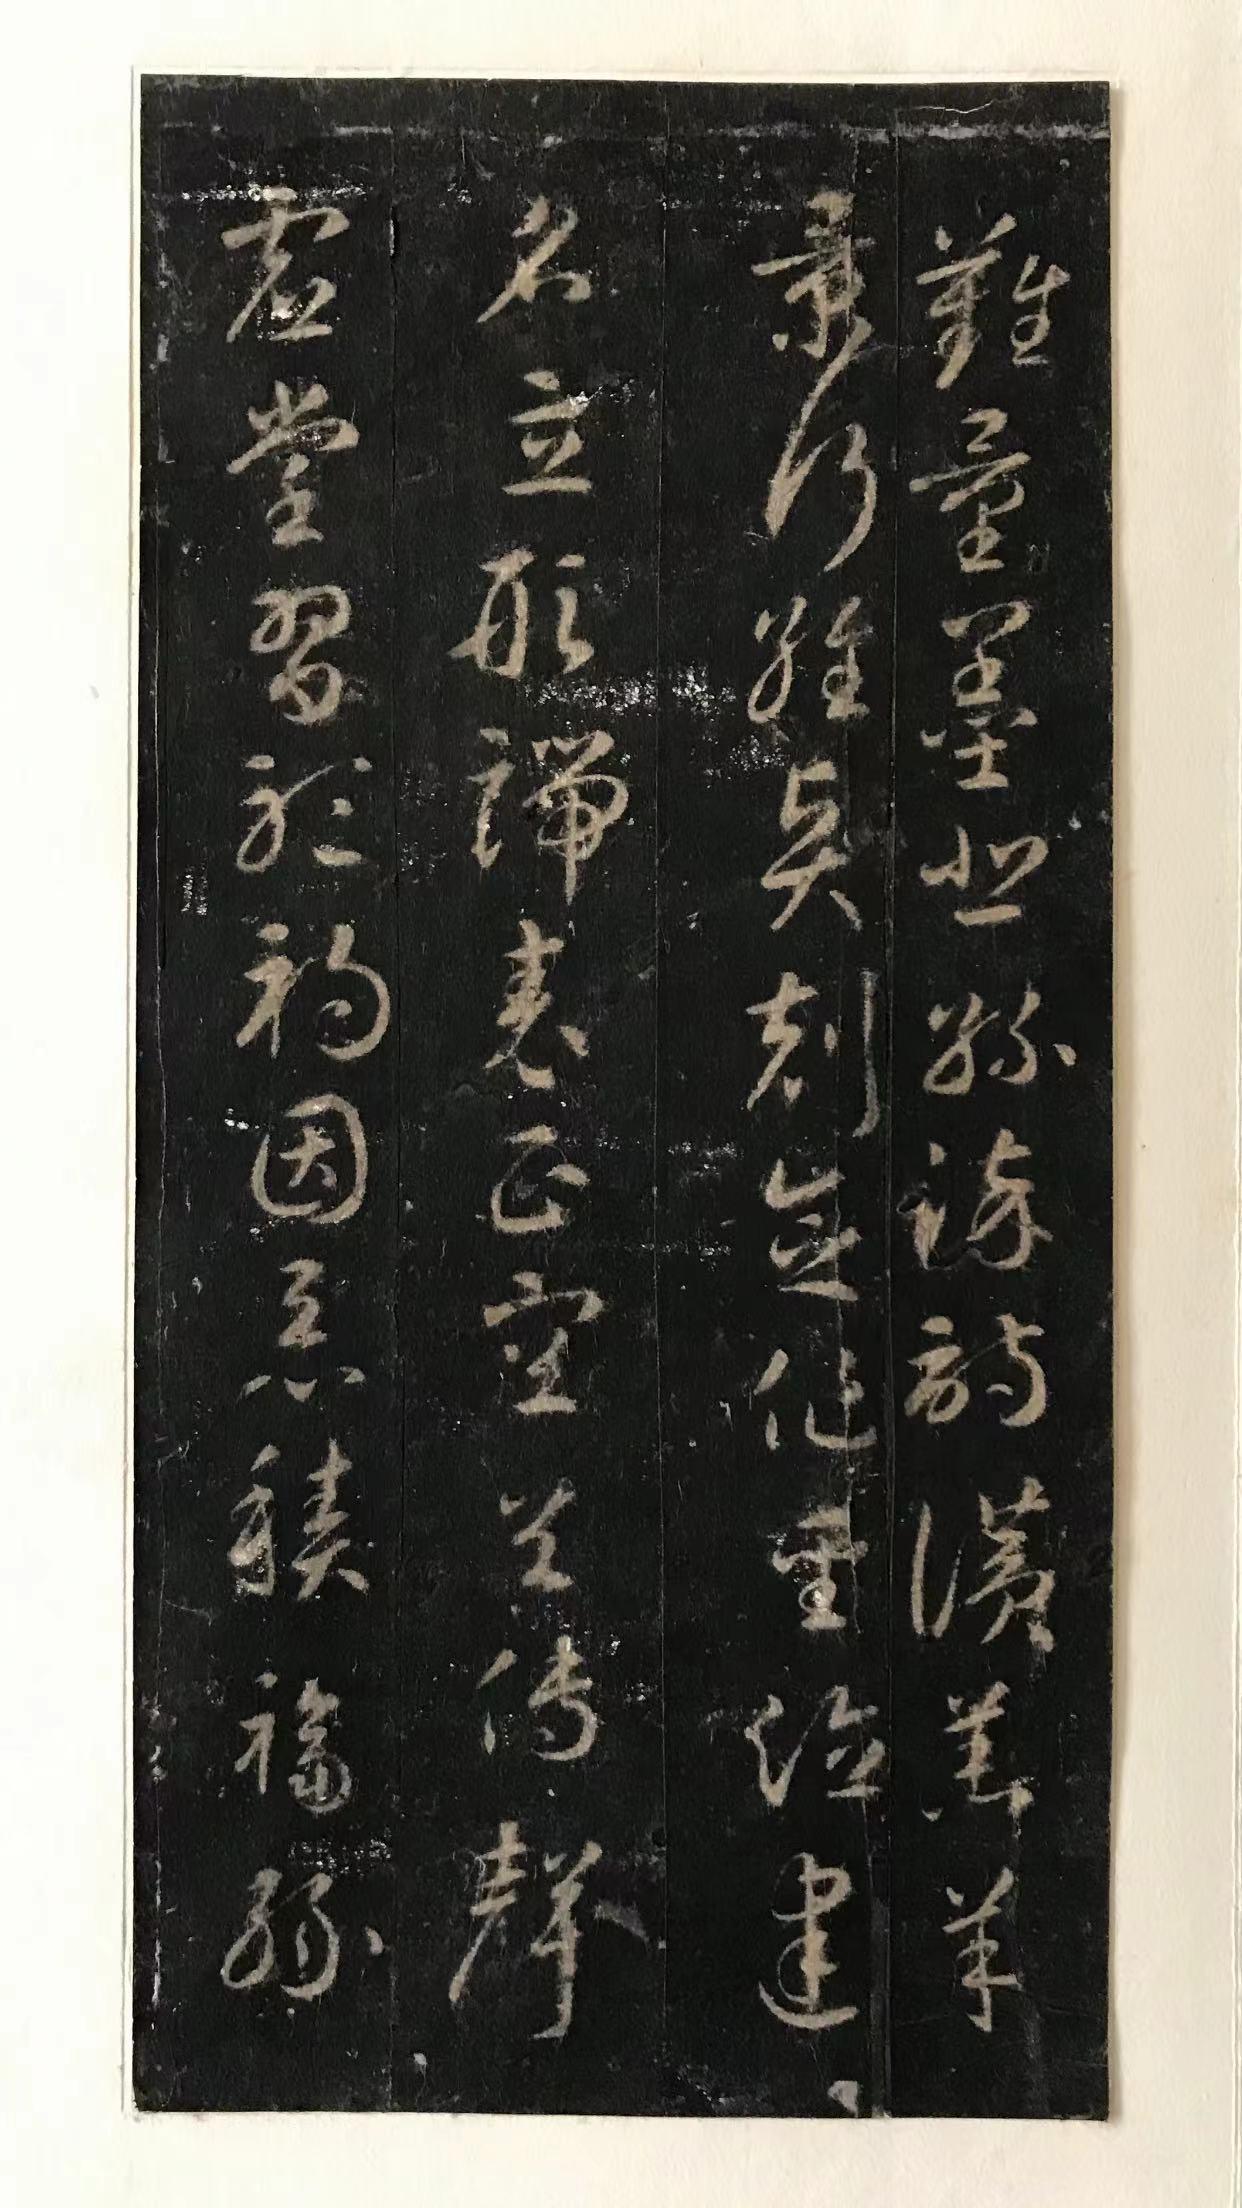 難量墨悲絲染詩讚羔羊
景行維賢剋念作聖德建
名立形端表正空谷傳聲
虛堂習聽禍因惡積福緣